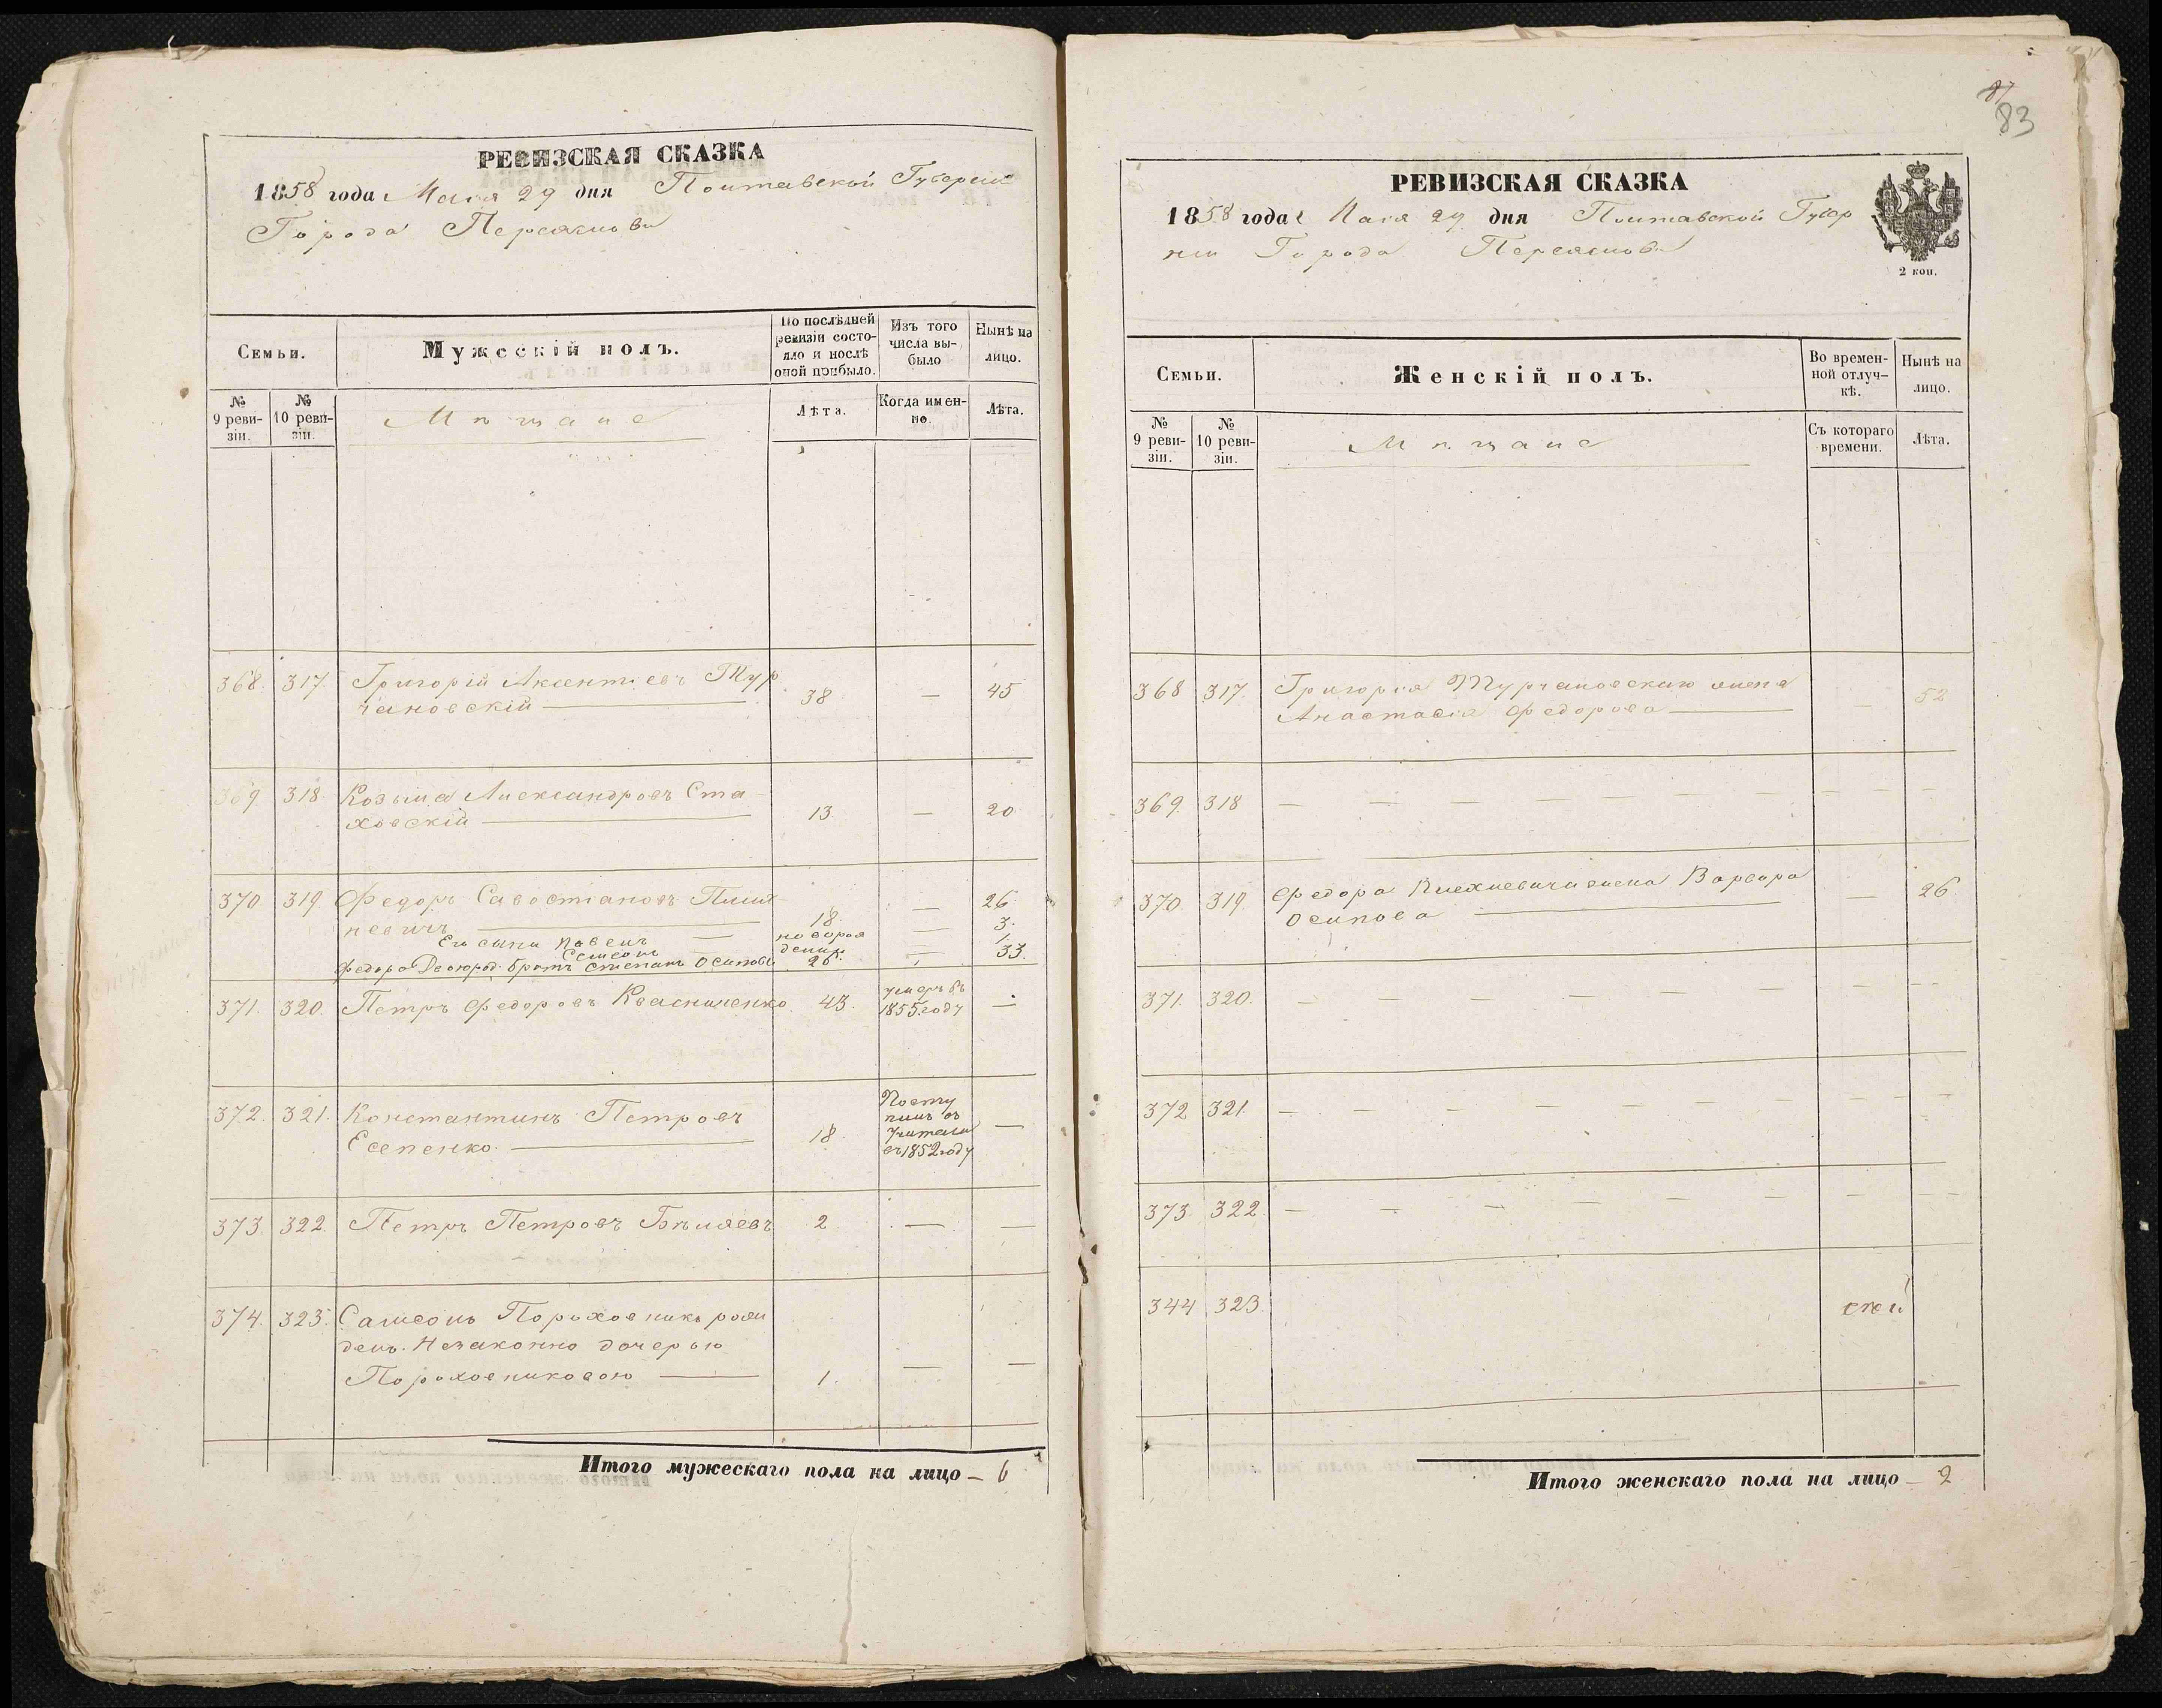 РЕВИЗСКАЯ СКАЗКА
1858 года Маія 29 дня Полтавской Губерніи
Города Переяслова
Семьи.
Мужескій полъ.
По послѣдней ревизіи состояло и послѣ оной прибыло.
Изъ того числа выбыло
Нынѣ на лицо.
№ 9 ревизіи.
№ 10 ревизіи.
Мѣщане
Лѣта.
Когда именно.
Лѣта.
368. 317. Григорій Аксентіевъ Тур
чановскій 38 — 45
369. 318. Козьма Александровъ Ста
ховскій 13. — 20.
370 319. Федоръ Савостіановъ
невичъ 18. — 26.
Его сыны Павелъ новорож — 3.
Семенъ денны — 1.
Федора Двоюрод. братъ Степанъ Осиповъ 26. — 33.
371. 320. Петръ Федоровъ Квасниченко 43. умеръ въ —
1855 году
372. 321. Константинъ Петровъ
Есепенко. 18. Посту
пилъ въ
Учители
въ 1852 году —
373. 322. Петръ Петровъ Бѣляевъ 2 — —
374. 323. Самсонъ Пороховникъ рож
денъ. Незаконно дочерью
Пороховниковою 1. — —
Итого мужескаго пола на лицо — 6
83
РЕВИЗСКАЯ СКАЗКА
1858 года Маія 29 дня Полтавской Губер
ніи Города Переяслова
2 коп.
Семьи.
Женскій полъ.
Во временной отлучкѣ.
Нынѣ на лицо.
№ 9 ревизіи.
№ 10 ревизіи.
Мѣщане
Съ котораго времени.
Лѣта.
368 317. Григорія Турчановскаго жена
Анастасія Федорова — 52
369. 318 — — — — — — — — —
370. 319. Федора жена Варвара
Осипова — 26.
371. 320. — — — — — — — —
372 321. — — — — — — — —
373. 322 — — — — — — — —
344 323.
Итого женскаго пола на лицо — 2